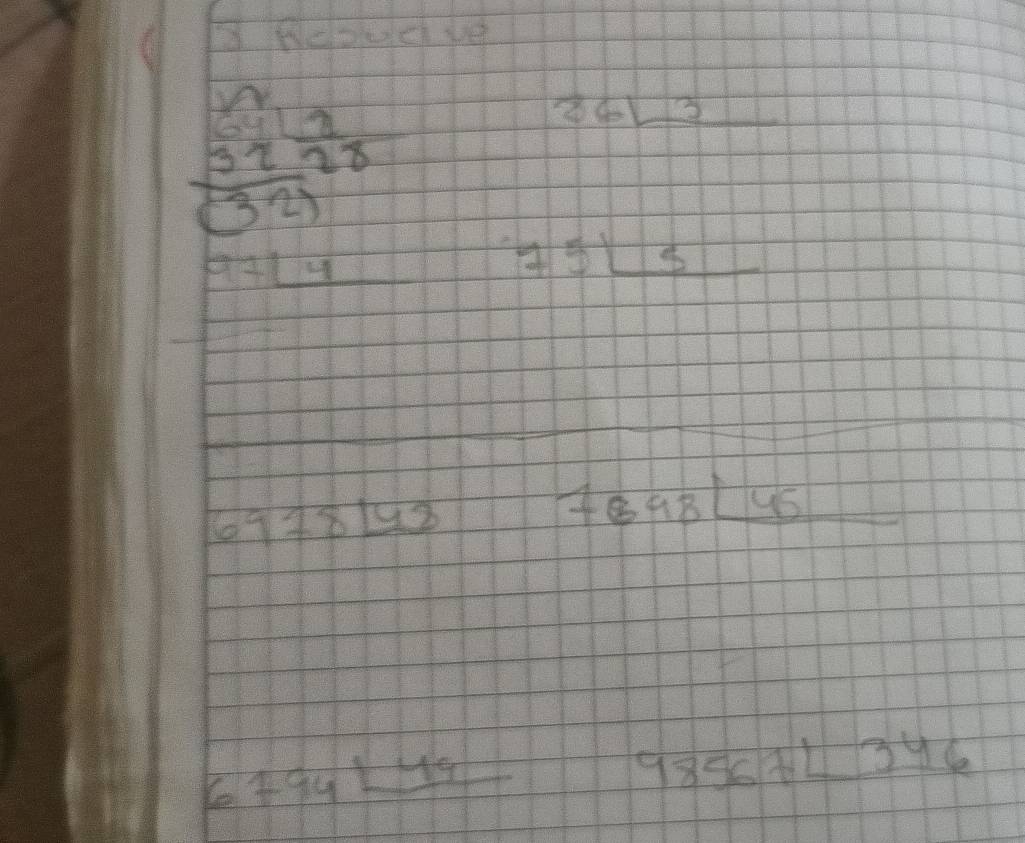 Resuelve
64 2 36 3
32 28
(32)
97 4 75 5
6978 43 7698 46
6794 49 98567 346